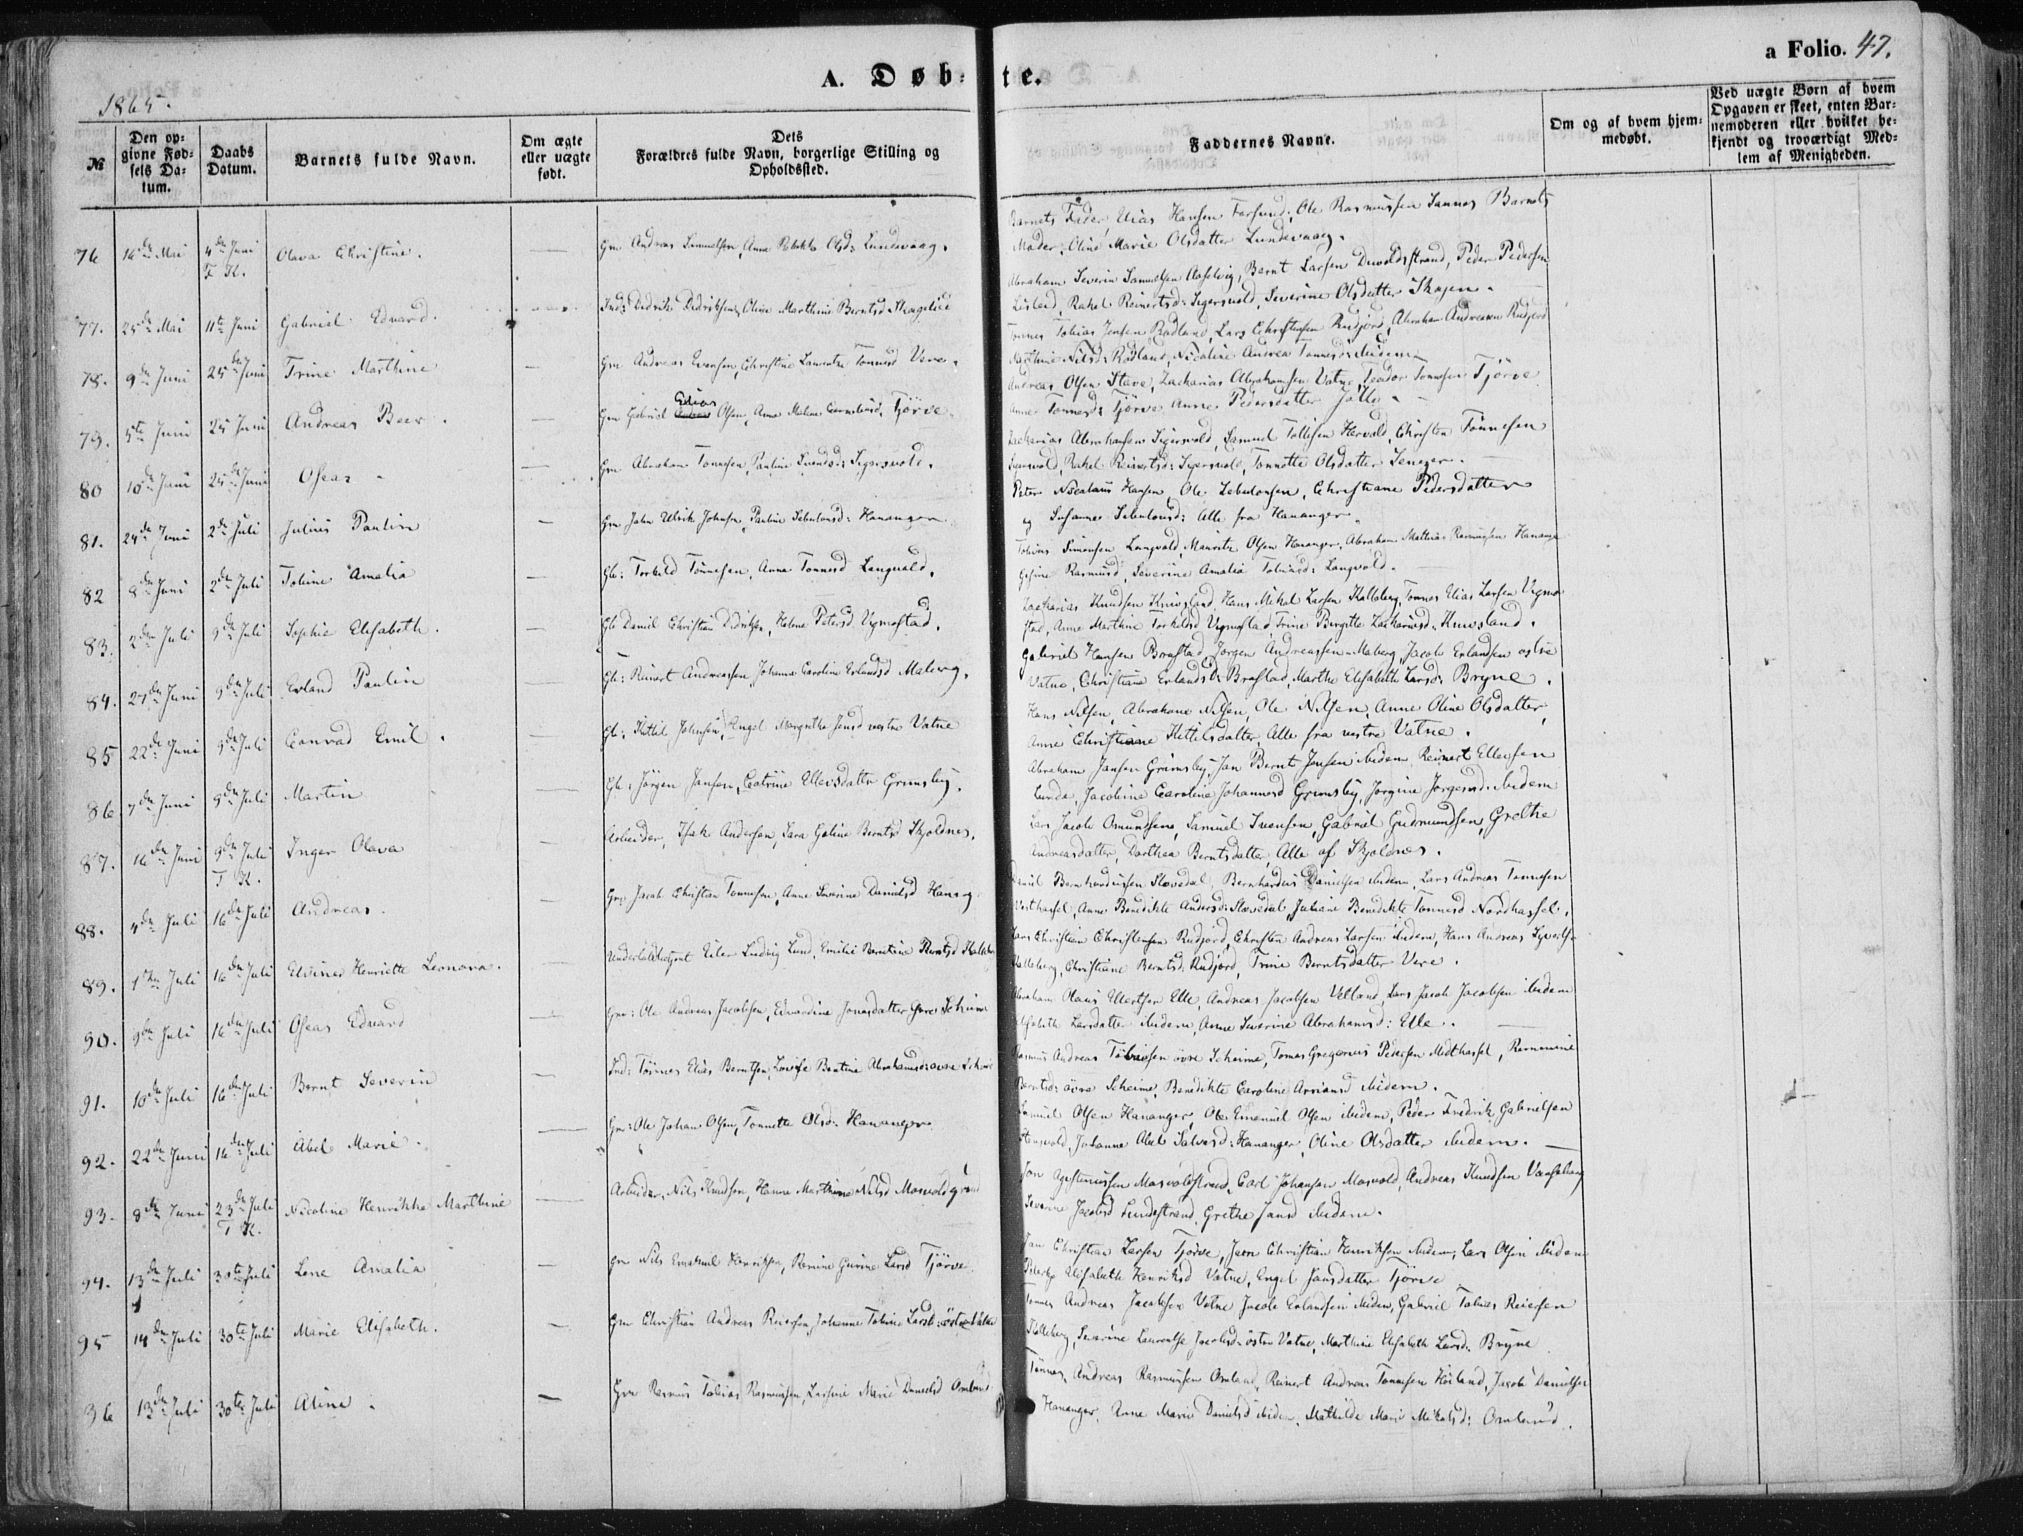 A. Døbte.
a Folio. 47.
1865.
№
Den opgivne Fødsels Datum.
Daabs Datum.
Barnets fulde Navn.
Om ægte eller uægte født.
Dets Forældres fulde Navn, borgerlige Stilling og Opholdssted.
Faddernes Navne.
Om og af hvem hjemmedøbt.
Ved uægte Børn af hvem Opgaven er skeet, enten Barnemoderen eller hvilket bekjendt og troværdigt Medlem af Menigheden.
76 Mai 4de Juni Olava Christine. Gm Andreas Samuelsen, Anne Olsd: Lundevaag.
F. K.
Barnets Fader Elias Hansen Farsund, Ole Rasmussen Sannes Barnets
Moder, Oline Marie Olsdatter Lundevaag.
77. 25de Mai 11te Juni Gabriel Edvard. Ind: Didrik Didriksen, Oline Marthine Berntsd
Abraham Severin Samuelsen, Bernt Larsen, Peder Pedersen
Rakel Reinertsd: Sigersvold, Severine Olsdatter Skagen.
78. 9de Juni 25de Juni Trine Marthine Gm Andreas Evensen, Christine Laurentze Tonnesd Vere.
Tonnes Tobias Jensen Rødland, Lars Christensen Rudjord, Abraham Andreasen Rudjord
Nilsd: Rødland, Nicoline Andrea Tonnesd: ibidem
79. 5te Juni 25 Juni Andreas Beer. Gm Gabriel Elias Olsen, Anne Malene Tjørve.
Andreas Olsen Stave, Zacharias Abrahamsen Vatne, Teodor Tonnesen Tjørve
Anne Tonnesd: Tjørve Anne Pedersdatter Jølle
80 10de Juni 25de Juni Oseas Gm Abraham Tonnesen, Pauline Svendsd: Sigersvold.
Zacharias Abrahamsen Sigersvold, Samuel Tollefsen Hervold, Christen Tønnesen
Rakel Reinertsd: Sigersvold, Tonnette Olsdatter
81. 24de Juni 2de Juli Julius Paulin Gm John Ulrik Johnsen, Pauline Sebulonsd: Hananger
Peter Nicolaus Hansen Ole Sebulonsen, Christiane Pedersdatter
og Susanne Sebulonsd: Alle fra Hananger.
82 8de Juni 2de Juli Tobine Amalia Gb: Torkild Tønnesen, Anna Tonnesd Langvald.
Tobias Simonsen Langvald, Mauritz Olsen Hananger, Abraham Mathias Rasmusen Hananger
Gesine Rasmusd, Severine Amalia Tobiasd: Langvold.
83. 2den Juli 9de Juli Sophie Elisabeth. Gb Daniel Christian Didriksen, Helene Petersd Vigmostad.
Zacharias Knudsen Knivsland, Hans Mikal Larsen Kalleberg, Tonnes Elias Larsen Vigmo
stad, Anne Marthine Torkildsd Vigmostad, Trine Birgitte Zachariasd: Knivsland.
84. 27de Juni 9de Juli Erland Paulin Gb: Reinert Andreassen, Johanne Caroline Erlandsd Maberg.
Gabriel Hansen Brastad Jørgen Andreassen Maberg, Jacob Erlandsen østre
Vatne, Christiane Erlandsd: Brastad, Marthe Elisabeth Larsd: Bryne.
85 22de Juni 9de Juli Conrad Emil. Gb: Kittil Johnsen, Engel Margrethe Jensd vestre Vatne
Hans Nilsen, Abraham Nilsen, Ole Nilsen, Anne Oline Olsdatter,
Anne Christiane Kittelsdatter, Alle fra vestre Vatne.
86 7de Juni 9de Juli Martin Gb: Jørgen Jansen, Catrine Ellevsdatter Grimsby.
Abraham Jansen Grimsby, Jan Bernt Jensen ibidem Reinert Ellevsen
Lunde, Jacobine Caroline Johannesd Grimsby, Jørgine Jørgensd: ibidem
87. 16de Juni 9de Juli Inger Olava Arbeider, Isak Andersen, Sara Goline Berntsd Skjoldnes.
F. K.
Lars Jacob Omundsen, Samuel Svensen, Gabriel Gudmundsen, Grethe
Andreasdatter, Dorthea Berntsdatter, Alle af Skjoldnes.
88. 4de Juli 16de Juli Andreas. Gm Jacob Christian Tonnesen, Anne Severine Danielsd
Daniel Bernhardussen Slevedal, Bernhardus Danielsen ibidem, Lars Andreas Tonnesen
Vesthassel, Anne Bendikte Andersd: Slevedal, Juliane Bendikte Tonnesd Nordhassel.
89. 1ste Juli 16de Juli Elvines Henriette Leonora. Eiler Ludvig Lund, Emilie Berntsd
Lars Christian Christensen Rudjord, Christen Andreas Larsen ibidem, Hans Andreas
Kalleberg, Christiane Berntsd: Rudjord, Trine Berntsdatter Vere.
90. 9de Juli 16de Juli Oseas Edvard Gm: Ole Andreas Jacobsen, Edvardine Jonasdatter
Abraham Olaus Elle, Andreas Jacobsen Velland, Lars Jacob Jacobsen ibidem
Elisabeth Larsdatter ibidem, Anne Severine Abrahamsd: Elle.
91. 10de Juli 16de Juli Bernt Severin Ind: Tønnes Elias Berntsen, Lovise Bentine Abrahamsd:
Rasmus Andreas Tobiesen øvre Scheime, Tomas Gregorius Pedersen Midthassel,
Berntsd: øvre Scheime, Bendikte Caroline ibidem.
92. 22de Juni 16de Juli Abel Marie. Gm: Ole Johan Olsen, Tonnette Olsd: Hananger
Samuel Olsen Hananger, Ole Emanuel Olsen ibidem, Peder Fredrik Gabrielsen
Johanne Abel Salvesd: Hananger, Oline Olsdatter ibidem.
93. 8de Juni 23de Juli Nicoline Henrikke Marthine Arbeider, Nils Knudsen, Hanne Marthine Nilsd Mosvold
F. K.
Carl Johansen Mosvold, Andreas Knudsen
Severine Jacobsd Lundestrand, Grethe Jansd ibidem.
94. 13de Juli 30te Juli Lene Amalia Gm Nils Emanuel Henriksen, Gurine Larsd Tjørve.
Jan Christian Larsen Tjørve, Jaen Christian Henriksen ibidem, Lars Olsen ibidem
Elisabeth Henriksd Vatne, Engel Jansdatter Tjørve
95 14de Juli 30te Juli Marie Elisabeth. Gm Christian Andreas Reiersen, Johanne Tobine Larsd: østre Vatne
Tonnes Andreas Jacobsen Vatne Jacob Erlandsen ibidem, Gabriel Tobias Reiersen
Kalleberg, Severine Laurentse Jacobsd: østre Vatne, Marthine Elisabeth Larsd: Bryne
96 13de Juli 30te Juli Aline. Gm Rasmus Tobias Rasmusen, Marie Danielsd Omland
Tønnes Andreas Rasmusen Omland, Reinert Andreas Tonnesen Høiland, Jacob Danielsen
Hananger, Anne Marie Danielsd ibidem, Mathilde Marie Mikalsd: Omland.